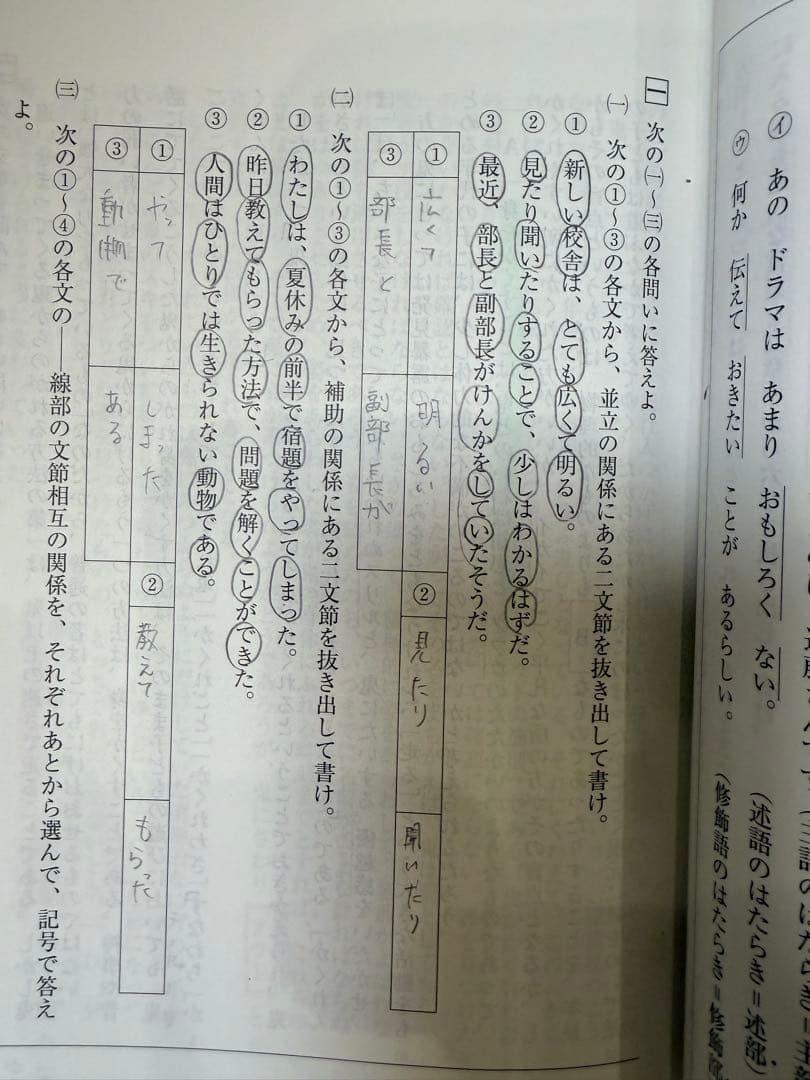 ㋑ あの ドラマは あまり おもしろく ない。 (述語のはたらき=述部)
㋒ 何か 伝えて おきたい ことが あるらしい。 (修飾語のはたらき=修飾部
一 次の㈠~㈢の各問いに答えよ。
㈠ 次の①~③の各文から、並立の関係にある二文節を抜き出して書け。
① 新しい校舎は、とても広くて明るい。
② 見たり聞いたりすることで、少しはわかるはずだ。
③ 最近、部長と副部長がけんかをしていたそうだ。
① 広くて 明るい ② 見たり 聞いたり
③ 部長と 副部長が
㈡ 次の①~③の各文から、補助の関係にある二文節を抜き出して書け。
① わたしは、夏休みの前半で宿題をやってしまった。
② 昨日教えてもらった方法で、問題を解くことができた。
③ 人間はひとりでは生きられない動物である。
① やって しまった ② 教えて もらった
③ 動物で ある
㈢ 次の①~④の各文の――線部の文節相互の関係を、それぞれあとから選んで、記号で答え
よ。